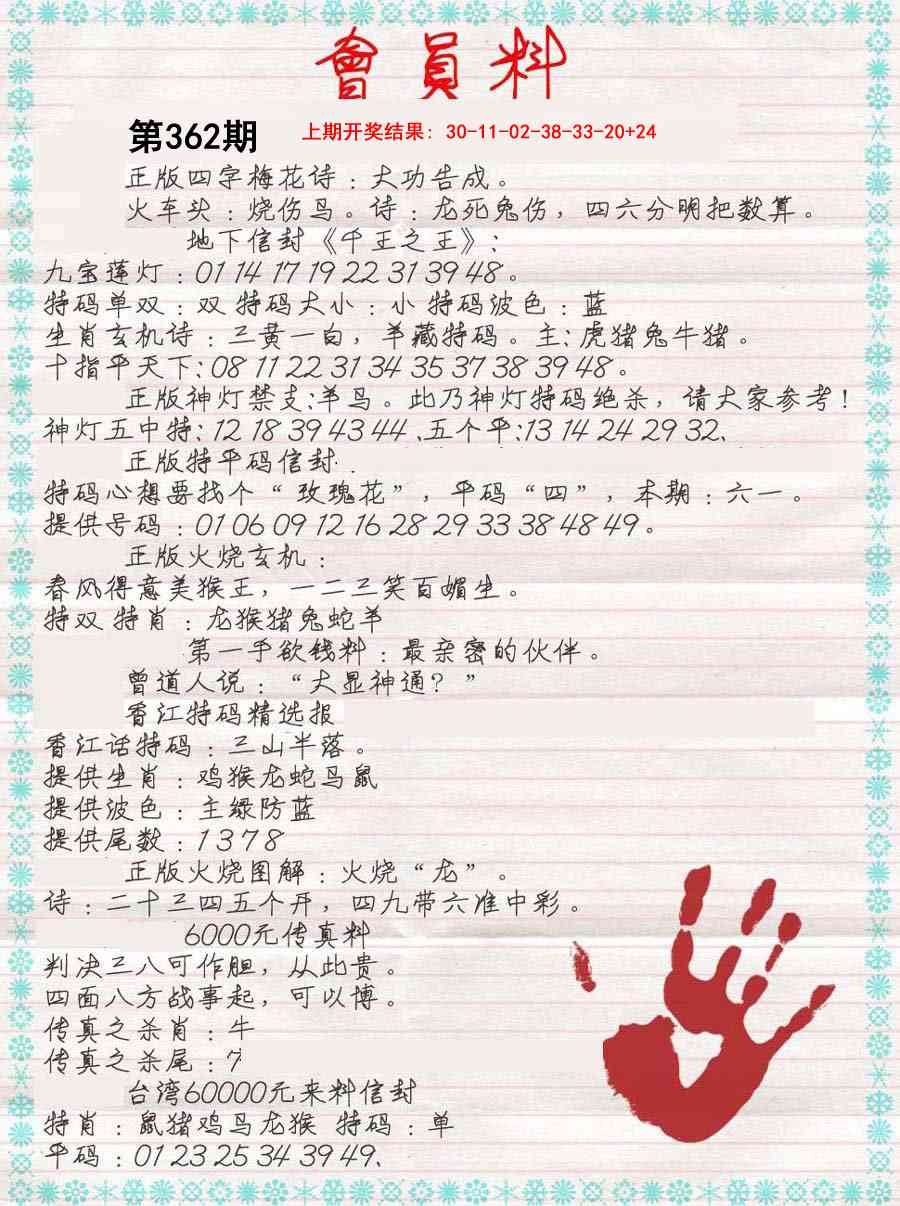 會員料
第362期 上期开奖结果：30-11-02-38-33-20+24
正版四字梅花诗：大功告成。
火车头：烧伤鸟。诗：龙死兔伤，四六分明把数算。
地下信封《千王之王》：
九宝莲灯：01 14 17 19 22 31 39 48。
特码单双：双 特码大小：小 特码波色：蓝
生肖玄机诗：三黄一白，羊藏特码。主：虎猪兔牛猪。
十指平天下：08 11 22 31 34 35 37 38 39 48。
正版神灯禁支：羊鸟。此乃神灯特码绝杀，请大家参考！
神灯五中特：12 18 39 43 44、五个平：13 14 24 29 32、
正版特平码信封
特码心想要找个“玫瑰花”，平码“四”，本期：六一。
提供号码：01 06 09 12 16 28 29 33 38 48 49。
正版火烧玄机：
春风得意美猴王，一二三笑百媚生。
特双 特肖：龙猴猪兔蛇羊
第一手欲钱料：最亲密的伙伴。
曾道人说：“大显神通？”
香江特码精选报
香江话特码：三山半落。
提供生肖：鸡猴龙蛇马鼠
提供波色：主绿防蓝
提供尾数：1 3 7 8
正版火烧图解：火烧“龙”。
诗：二十三四五个开，四九带六准中彩。
6000元传真料
判决三八可作胆，从此贵。
四面八方战事起，可以博。
传真之杀肖：牛
传真之杀尾：7
台湾60000元来料信封
特肖：鼠猪鸡马龙猴 特码：单
平码：01 23 25 34 39 49、